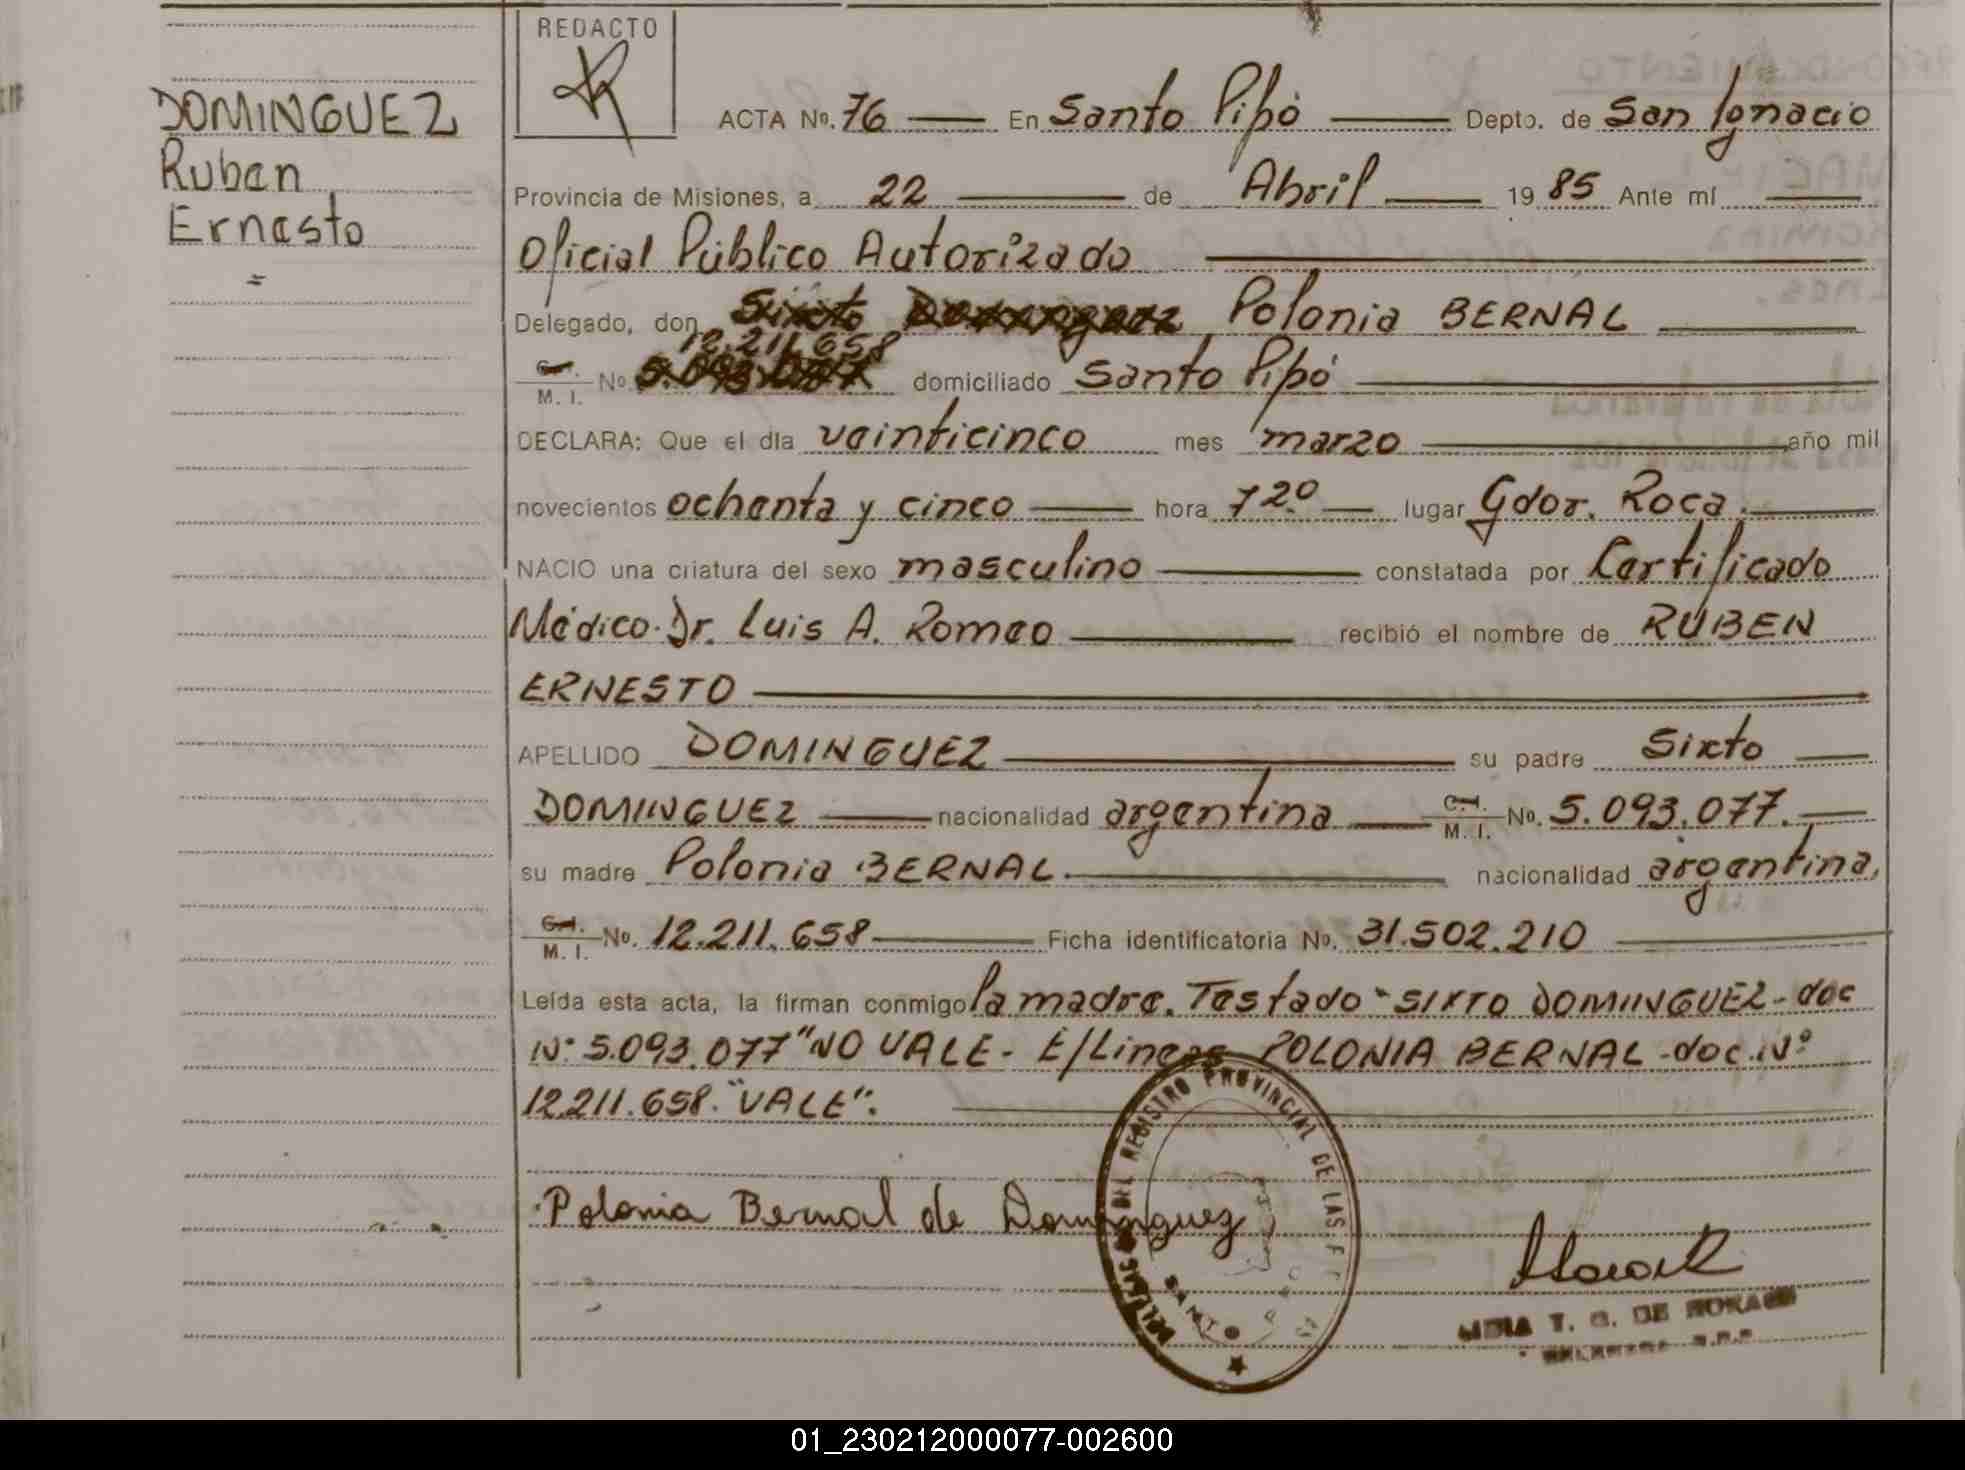 DOMINGUEZ
Ruben
Ernesto
=
REDACTO
ACTA No. 76 — En Santo Pipó — Depto. de San Ignacio
Provincia de Misiones, a 22 — de Abril — 19 85 Ante mí —
Oficial Público Autorizado —
Delegado, don Sixto Dominguez Polonia BERNAL —
12.211.658
C.I. / M. I. No 5.093.077 domiciliado Santo Pipó —
DECLARA: Que el día veinticinco mes marzo — año mil
novecientos ochenta y cinco — hora 7 20 — lugar Gdor. Roca. —
NACIO una criatura del sexo masculino — constatada por Certificado
Médico. Dr. Luis A. Romeo — recibió el nombre de RUBEN
ERNESTO —
APELLIDO DOMINGUEZ — su padre Sixto —
DOMINGUEZ — nacionalidad argentina — C.I. / M. I. No. 5.093.077. —
su madre Polonia BERNAL. — nacionalidad argentina,
C.I. / M. I. No. 12.211.658 — Ficha identificatoria No. 31.502.210 —
Leída esta acta, la firman conmigo la madre. Testado "SIXTO DOMINGUEZ - doc
Nº 5.093.077 "NO VALE - E/Lineas POLONIA BERNAL - doc. Nº
12.211.658. "VALE". —
Polonia Bernal de Dominguez
DEL REGISTRO PROVINCIAL DE LAS
SANTO
T. G. DE
01_230212000077-002600